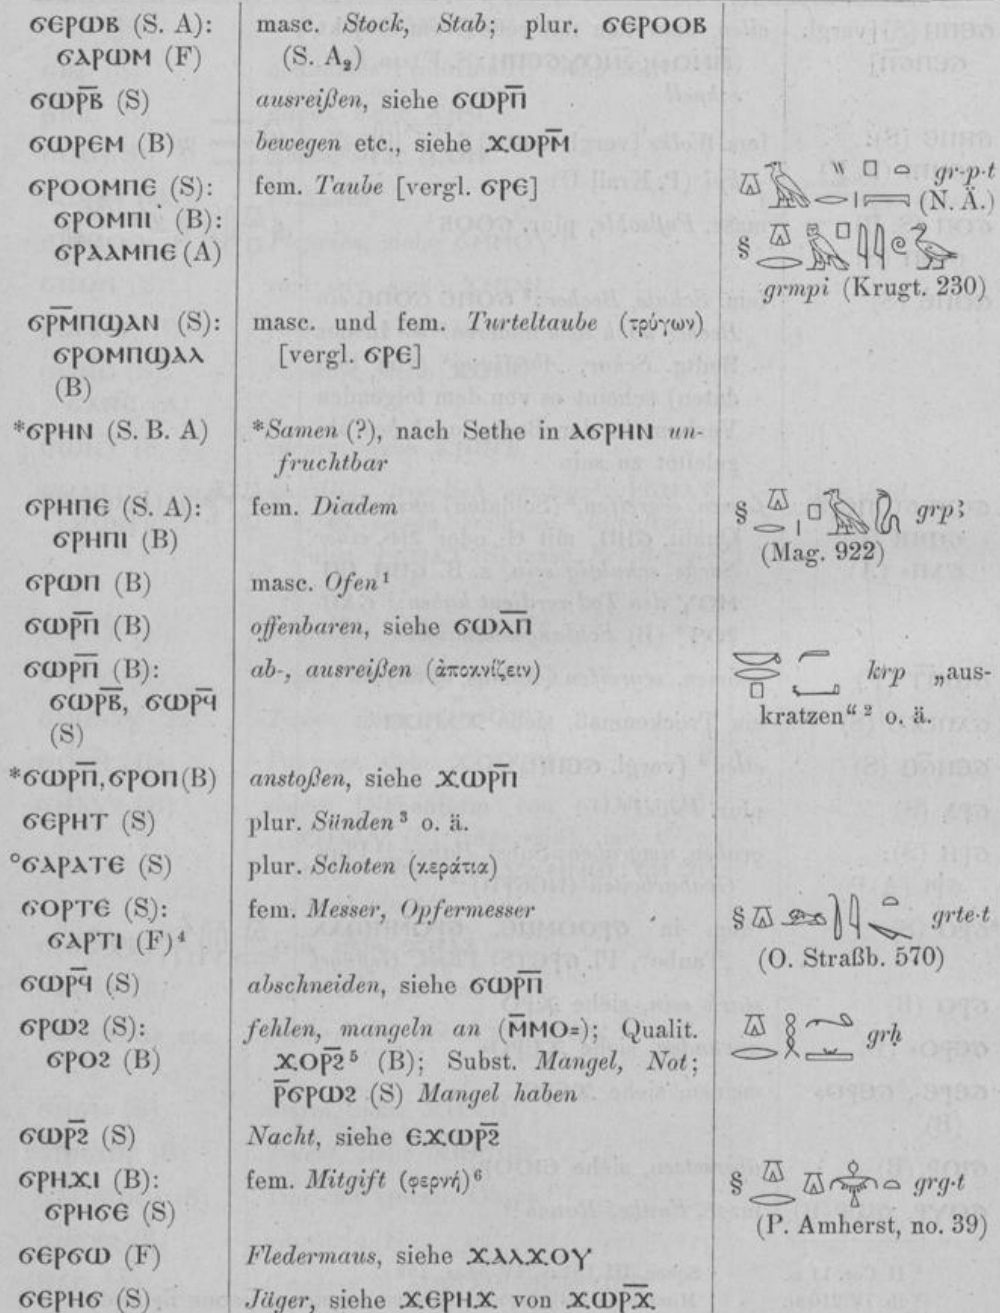 ϭⲉⲣⲱⲃ (S. A): masc. Stock, Stab; plur. ϭⲉⲣⲟⲟⲃ
ϭⲁⲣⲱⲙ (F) (S. A₂)
ϭⲱⲣ̅ⲃ̅ (S) ausreißen, siehe ϭⲱⲣ̅ⲡ̅
ϭⲱⲣⲉⲙ (B) bewegen etc., siehe ϫⲱⲣ̅ⲙ̅
ϭⲣⲟⲟⲙⲡⲉ (S): fem. Taube [vergl. ϭⲣⲉ] gr-p·t
ϭⲣⲟⲙⲡⲓ (B): (N. Ä.)
ϭⲣⲁⲁⲙⲡⲉ (A) §
grmpi (Krugt. 230)
ϭⲣ̅ⲙ̅ⲡϣⲁⲛ (S): masc. und fem. Turteltaube (τρύγων)
ϭⲣⲟⲙⲡϣⲁⲗ [vergl. ϭⲣⲉ]
(B)
*ϭⲣⲏⲛ (S. B. A) *Samen (?), nach Sethe in ⲁϭⲣⲏⲛ un-
fruchtbar
ϭⲣⲏⲡⲉ (S. A): fem. Diadem § grpꜣ
ϭⲣⲏⲡⲓ (B) (Mag. 922)
ϭⲣⲱⲡ (B) masc. Ofen¹
ϭⲱⲣ̅ⲡ̅ (B) offenbaren, siehe ϭⲱⲗ̅ⲡ̅
ϭⲱⲣ̅ⲡ̅ (B): ab-, ausreißen (ἀποκνίζειν) krp „aus-
ϭⲱⲣ̅ⲃ̅, ϭⲱⲣ̅ϥ̅ kratzen“² o. ä.
(S)
*ϭⲱⲣ̅ⲡ̅, ϭⲣⲟⲡ (B) anstoßen, siehe ϫⲱⲣ̅ⲡ̅
ϭⲉⲣⲏⲧ (S) plur. Sünden³ o. ä.
°ϭⲁⲣⲁⲧⲉ (S) plur. Schoten (κεράτια)
ϭⲟⲣⲧⲉ (S): fem. Messer, Opfermesser § grte·t
ϭⲁⲣⲧⲓ (F)⁴ (O. Straßb. 570)
ϭⲱⲣ̅ϥ̅ (S) abschneiden, siehe ϭⲱⲣ̅ⲡ̅
ϭⲣⲱϩ (S): fehlen, mangeln an (ⲙ̅ⲙⲟ=); Qualit. grḥ
ϭⲣⲟϩ (B) ϫⲟⲣ̅ϩ̅⁵ (B); Subst. Mangel, Not;
ⲣ̅ϭⲣⲱϩ (S) Mangel haben
ϭⲱⲣ̅ϩ̅ (S) Nacht, siehe ⲉϫⲱⲣ̅ϩ̅
ϭⲣⲏϫⲓ (B): fem. Mitgift (φερνή)⁶ § grg·t
ϭⲣⲏϭⲉ (S) (P. Amherst, no. 39)
ϭⲉⲣϭⲱ (F) Fledermaus, siehe ϫⲁⲗϫⲟⲩ
ϭⲉⲣⲏϭ (S) Jäger, siehe ϫⲉⲣⲏϫ von ϫⲱⲣ̅ϫ̅